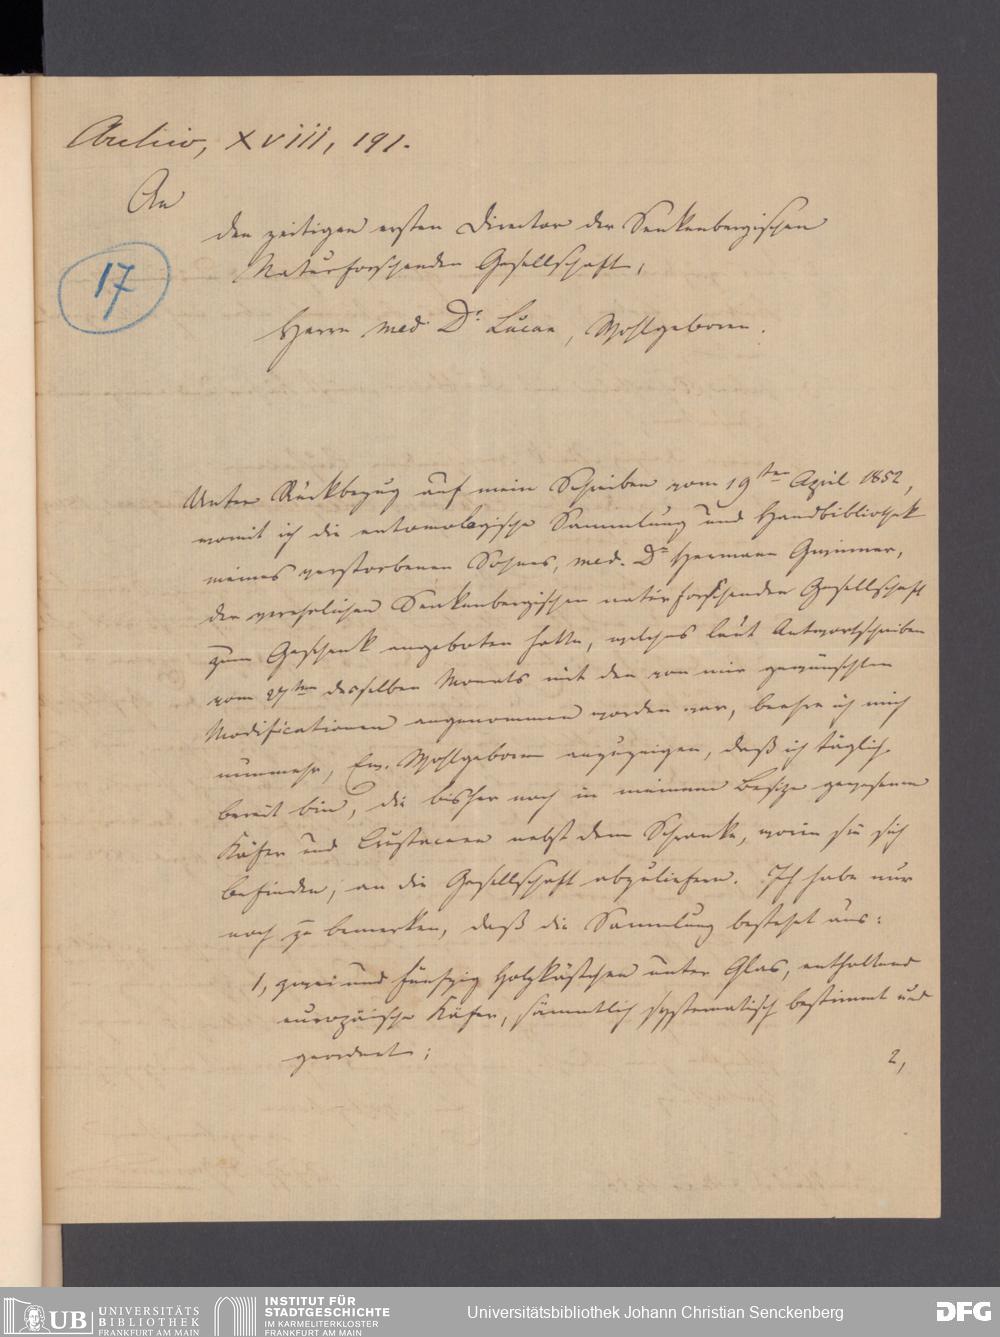 Archiv, XVIII, 191.
An
den zeitigen ersten Director der Senkenbergischen
17
Naturforschenden Gesellschaft,
Herrn med. Dr. Lucae, Wohlgeboren.
Unter Rückbezug auf mein Schreiben vom 19ten April 1852,
womit ich die entomologische Sammlung und Handbibliothek
meines verstorbenen Sohnes, med. Dr. Hermann Gwinner,
der verehrlichen Senkenbergischen naturforschenden Gesellschaft
zum Geschenk angeboten hatte, welches laut Antwortschreiben
vom 27ten desselben Monats mit den von mir gewünschten
Modificationen angenommen worden war, beehre ich mich
nunmehr, Ew. Wohlgeboren anzuzeigen, daß ich täglich
bereit bin, die bisher noch in meinem Besitze gewesenen
Käfer und Crustaceen nebst dem Schranke, worin sie sich
befinden, an die Gesellschaft abzuliefern. Ich habe nur
noch zu bemerken, daß die Sammlung bestehet aus:
1, zwei und fünfzig Holzkästchen unter Glas, enthaltend
europäische Käfer, sämmtlich systematisch bestimmt und
geordnet;
2,
UB UNIVERSITÄTS
BIBLIOTHEK
FRANKFURT AM MAIN
INSTITUT FÜR
STADTGESCHICHTE
IM KARMELITERKLOSTER
FRANKFURT AM MAIN
Universitätsbibliothek Johann Christian Senckenberg
DFG